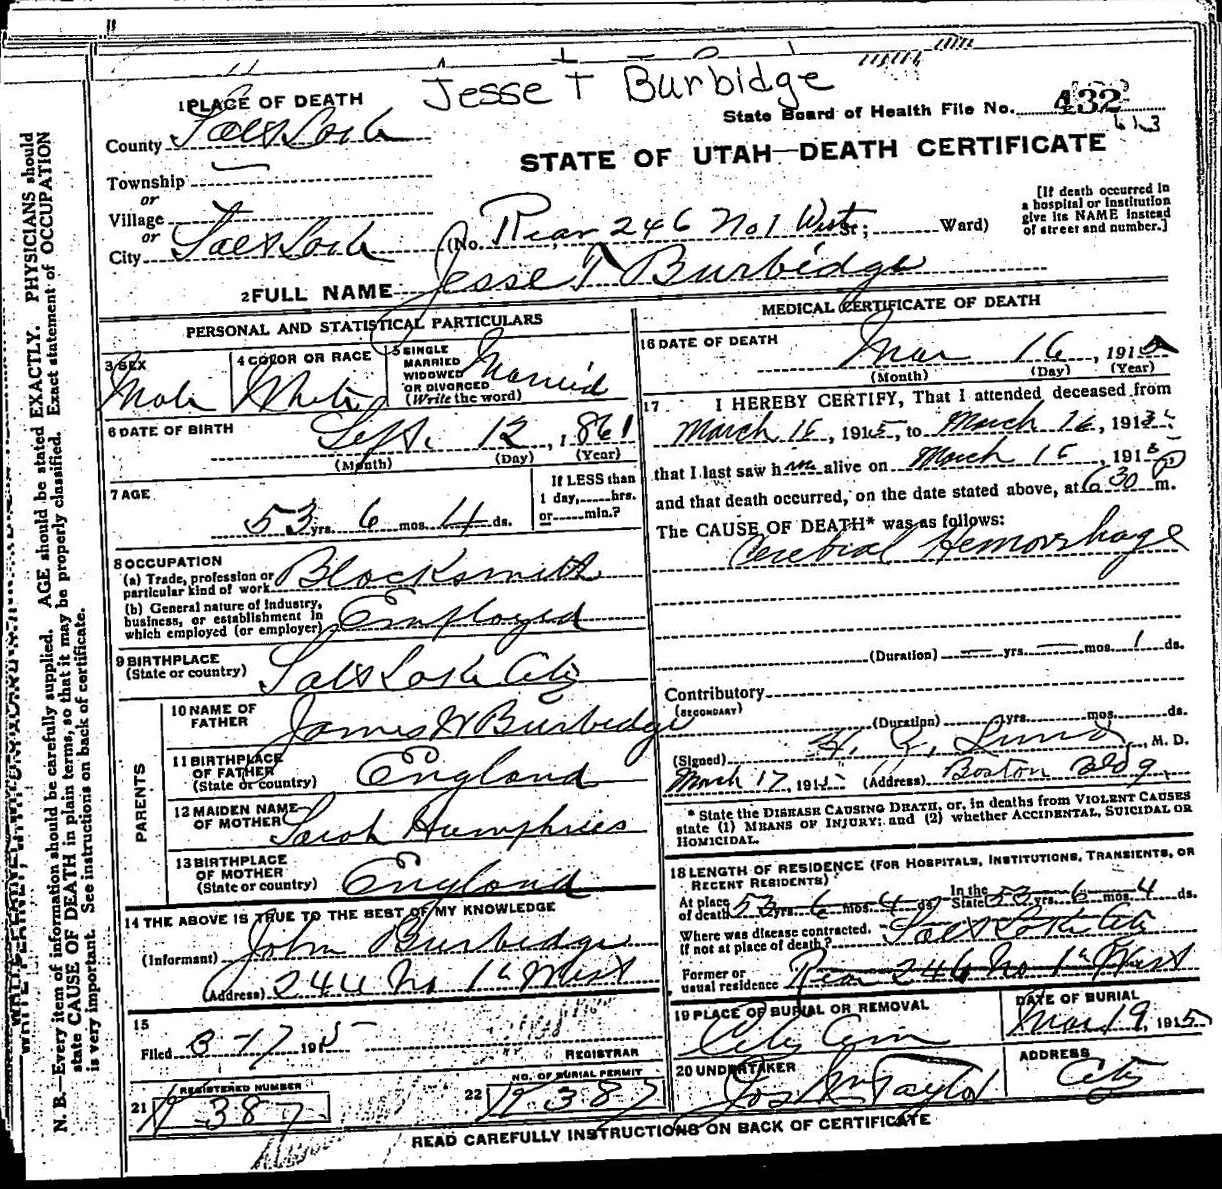 Jesse T Burbidge
1 PLACE OF DEATH
State Board of Health File No. 432
613
County Salt Lake
STATE OF UTAH—DEATH CERTIFICATE
Township
or
Village
or
City Salt Lake (No. Rear 246 No 1 West St; Ward)
[If death occurred in a hospital or institution give its NAME instead of street and number.]
2 FULL NAME Jesse T Burbidge
PERSONAL AND STATISTICAL PARTICULARS
3 SEX Male
4 COLOR OR RACE White
5 SINGLE MARRIED WIDOWED OR DIVORCED (Write the word) Married
6 DATE OF BIRTH Sept. 12, 1861
(Month) (Day) (Year)
7 AGE 53 yrs. 6 mos. 4 ds.
If LESS than 1 day, hrs. or min.?
8 OCCUPATION
(a) Trade, profession or particular kind of work Blacksmith
(b) General nature of Industry, business, or establishment in which employed (or employer) Employed
9 BIRTHPLACE (State or country) Salt Lake City
PARENTS
10 NAME OF FATHER James W Burbidge
11 BIRTHPLACE OF FATHER (State or country) England
12 MAIDEN NAME OF MOTHER Sarah Humphries
13 BIRTHPLACE OF MOTHER (State or country) England
14 THE ABOVE IS TRUE TO THE BEST OF MY KNOWLEDGE
(Informant) John Burbidge
(Address) 244 No 1st West
15
Filed 3-17 1915
REGISTRAR
REGISTERED NUMBER
21 387
NO. OF BURIAL PERMIT
22 387
MEDICAL CERTIFICATE OF DEATH
16 DATE OF DEATH Mar 16, 191
(Month) (Day) (Year)
17 I HEREBY CERTIFY, That I attended deceased from
March 15, 1915, to March 16, 1915
that I last saw him alive on March 15, 1915
and that death occurred, on the date stated above, at 630 P m.
The CAUSE OF DEATH* was as follows:
Cerebral Hemorrhage
(Duration) — yrs. — mos. 1 ds.
Contributory
(SECONDARY)
(Duration) yrs. mos. ds.
(Signed) Lund, M. D.
March 17, 1915 (Address) Boston Bldg.
* State the DISEASE CAUSING DEATH, or, in deaths from VIOLENT CAUSES state (1) MEANS OF INJURY; and (2) whether ACCIDENTAL, SUICIDAL OR HOMICIDAL.
18 LENGTH OF RESIDENCE (FOR HOSPITALS, INSTITUTIONS, TRANSIENTS, OR RECENT RESIDENTS)
At place of death 53 yrs. 6 mos. 4 ds. In the State 53 yrs. 6 mos. 4 ds.
Where was disease contracted, if not at place of death? Salt Lake City
Former or usual residence Rear 246 No 1st West
19 PLACE OF BURIAL OR REMOVAL City Cem
DATE OF BURIAL Mar 19, 1915
20 UNDERTAKER Jos Wm Taylor
ADDRESS City
READ CAREFULLY INSTRUCTIONS ON BACK OF CERTIFICATE
N. B.—Every item of information should be carefully supplied. AGE should be stated EXACTLY. PHYSICIANS should
state CAUSE OF DEATH in plain terms, so that it may be properly classified. Exact statement of OCCUPATION
is very important. See instructions on back of certificate.